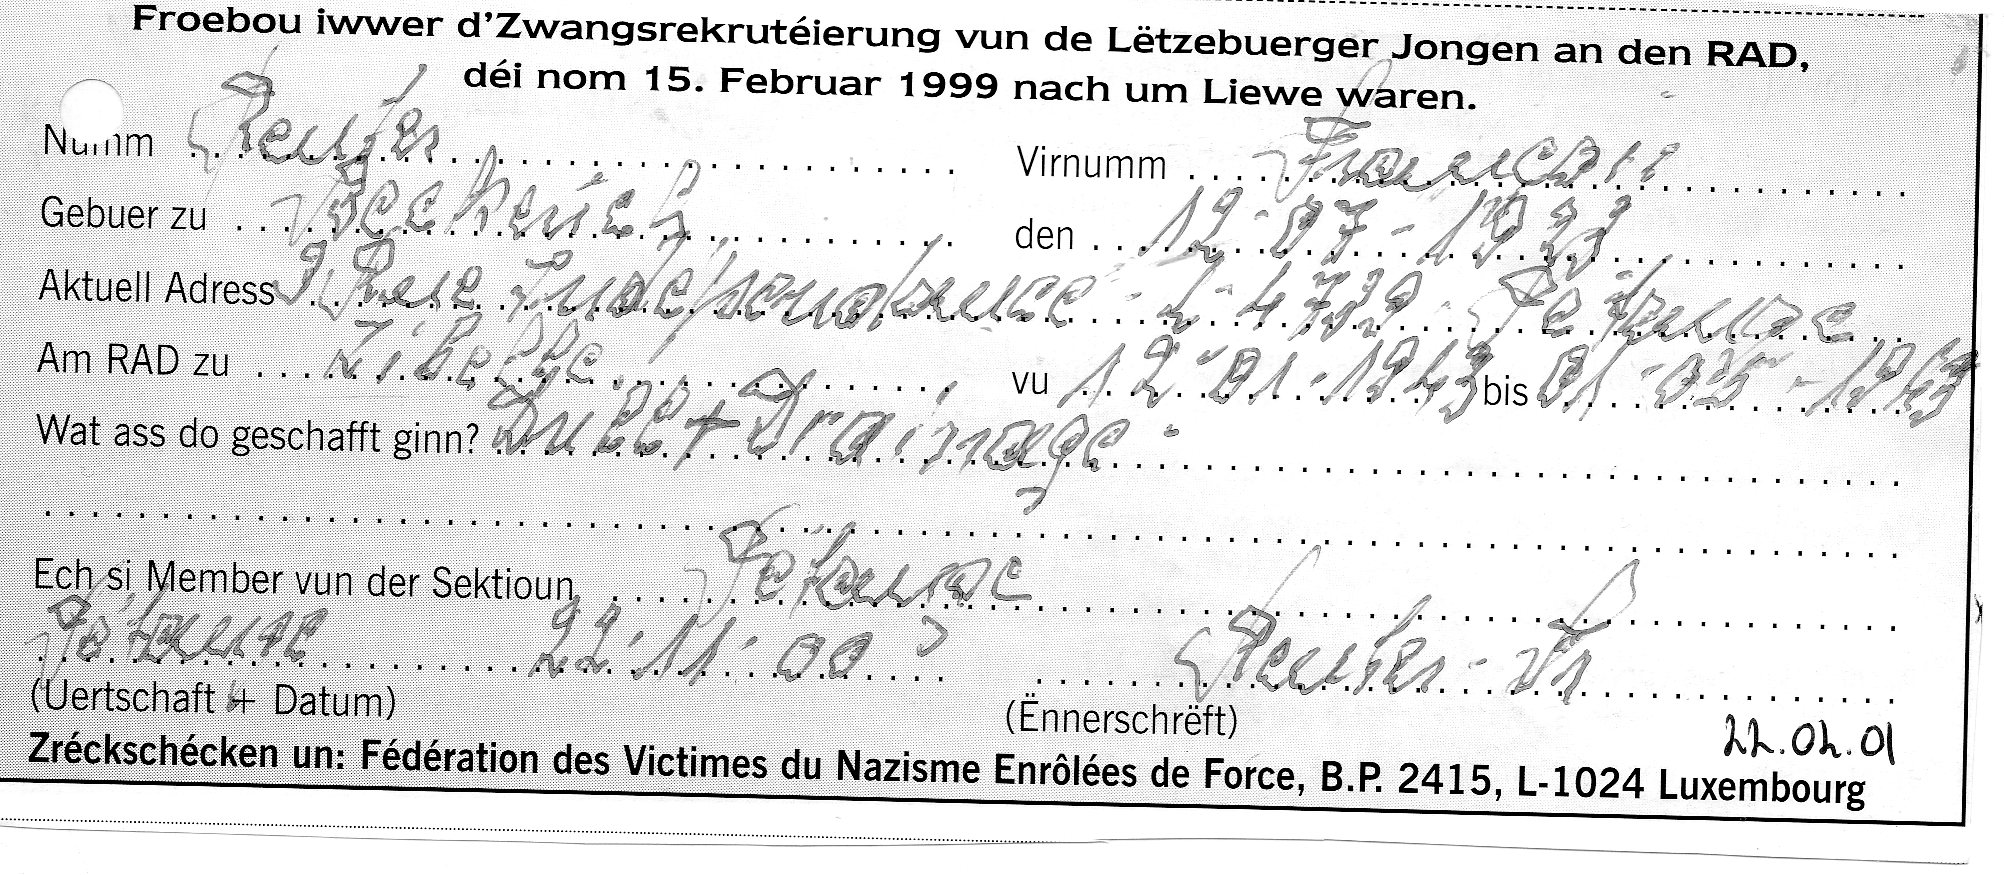 Froebou iwwer d'Zwangsrekrutéierung vun de Lëtzebuerger Jongen an den RAD,
déi nom 15. Februar 1999 nach um Liewe waren.
Numm Reuter Virnumm François
Gebuer zu Beckerich den 12-07-1923
Aktuell Adress Rue Indépendance L-4739 Pétange
Am RAD zu Zibelle vu 12-01-1943 bis 01-05-1943
Wat ass do geschafft ginn? Drill + Drainage
Ech si Member vun der Sektioun Pétange
Pétange 22.11.00 Reuter-Fr
(Uertschaft + Datum) (Ënnerschrëft)
22.02.01
Zréckschécken un: Fédération des Victimes du Nazisme Enrôlées de Force, B.P. 2415, L-1024 Luxembourg